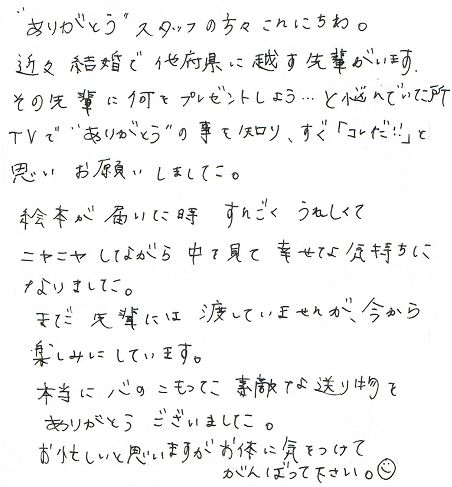 "ありがとう"スタッフの方々こんにちわ。
近々結婚で他府県に越す先輩がいます。
その先輩に何をプレゼントしよう…と悩んでいた所
TVで"ありがとう"の事を知り、すぐ「コレだ!!」と
思いお願いしました。
絵本が届いた時すんごくうれしくて
ニヤニヤしながら中を見て幸せな気持ちに
なりました。
まだ先輩には渡していませんが、今から
楽しみにしています。
本当に心のこもった素敵な送り物を
ありがとうございました。
お忙しいと思いますがお体に気をつけて
がんばって下さい。☺